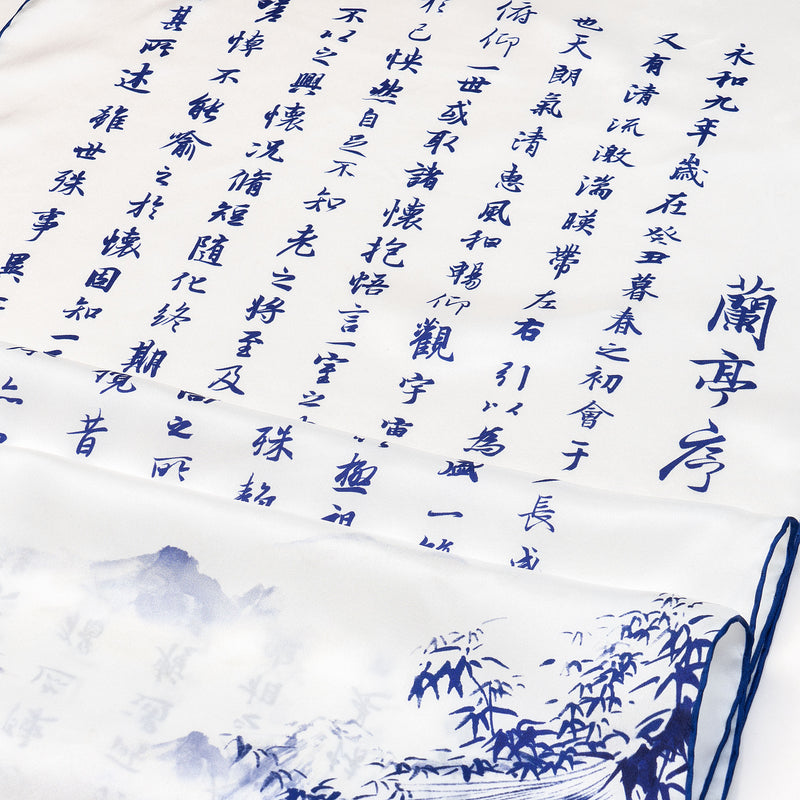 蘭亭序
永和九年歲在癸丑暮春之初會于
又有清流激湍暎帶左右引以為
也天朗氣清惠風和暢仰觀宇宙
俯仰一世或取諸懷抱悟言一室之
於己怏然自足不知老之將至及
不以之興懷況脩短隨化終期
嗟悼不能喻之於懷固知一
其所述雖世殊事異
長咸
盛一
極視
殊
之所
視昔